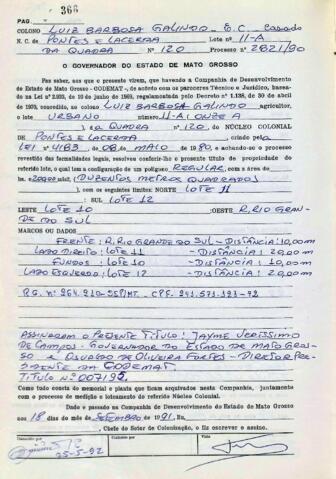 PAG. 366
COLONO LUIZ BARBOSA GALINDO E.C. Casado
N. C. de PONTES E LACERDA Lote nº 11-A
DA QUADRA Nº 120 Processo nº 2821/90
O GOVERNADOR DO ESTADO DE MATO GROSSO
Faz saber, aos que o presente virem, que havendo a Companhia de Desenvolvimento
do Estado de Mato Grosso - CODEMAT -, de acordo com os pareceres Técnico e Jurídico, baseada
na Lei nº 2.939, de 19 de junho de 1969, regulamentada pelo Decreto nº 1.138, de 30 de abril de
1970, concedido, ao colono LUIZ BARBOSA GALINDO agricultor,
o lote URBANO nº 11-A ONZE A
da QUADRA nº 120, do NÚCLEO COLONIAL
DE PONTES E LACERDA criado pela
LEI nº 4183, de 08 de MAIO de 1980, e achando-se o processo
revestido das formalidades legais, resolveu conferir-lhe o presente título de propriedade do
referido lote, o qual tem a configuração de um polígono REGULAR, com a área de
(DUZENTOS METROS QUADRADOS)
), com os seguintes limites: NORTE LOTE 11
SUL LOTE 12
LESTE LOTE 10 OESTE R. RIO GRAN-
DE DO SUL
MARCOS OU DADOS
FRENTE: R. RIO GRANDE DO SUL - DISTÂNCIA: 10,00m
LADO DIREITO: LOTE 11 - DISTÂNCIA: 20,00m
FUNDOS: LOTE 10 - DISTÂNCIA: 10,00m
LADO ESQUERDO: LOTE 12 - DISTÂNCIA: 20,00m
ASSINARAM O PRESENTE TÍTULO: JAYME VERISSIMO
DE CAMPOS - GOVERNADOR DO ESTADO DE MATO GROS-
SO E OSVALDO DE OLIVEIRA FORTES - DIRETOR PRE-
SIDENTE DA CODEMAT
TITULO Nº
Como tudo consta do memorial e planta que ficam arquivados nesta Companhia, juntamente
com o processo de medição e loteamento do referido Núcleo Colonial.
Dado e passado na Companhia de Desenvolvimento do Estado de Mato Grosso
aos 18 dias do mês de SETEMBRO de 1991, Eu,
, Chefe do Setor de Colonização, o fiz escrever e assino.